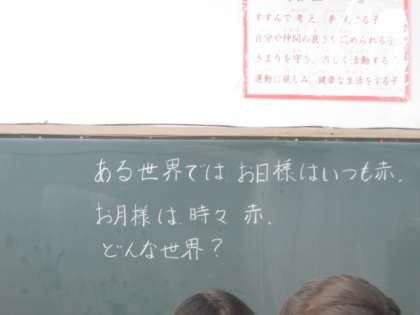 すすんで考え、
自分や仲間の良さを認められる子
きまりを守り、正しく活動する
運動に親しみ、健康な生活をする子
ある世界では お日様はいつも赤.
お月様は 時々 赤.
どんな世界?